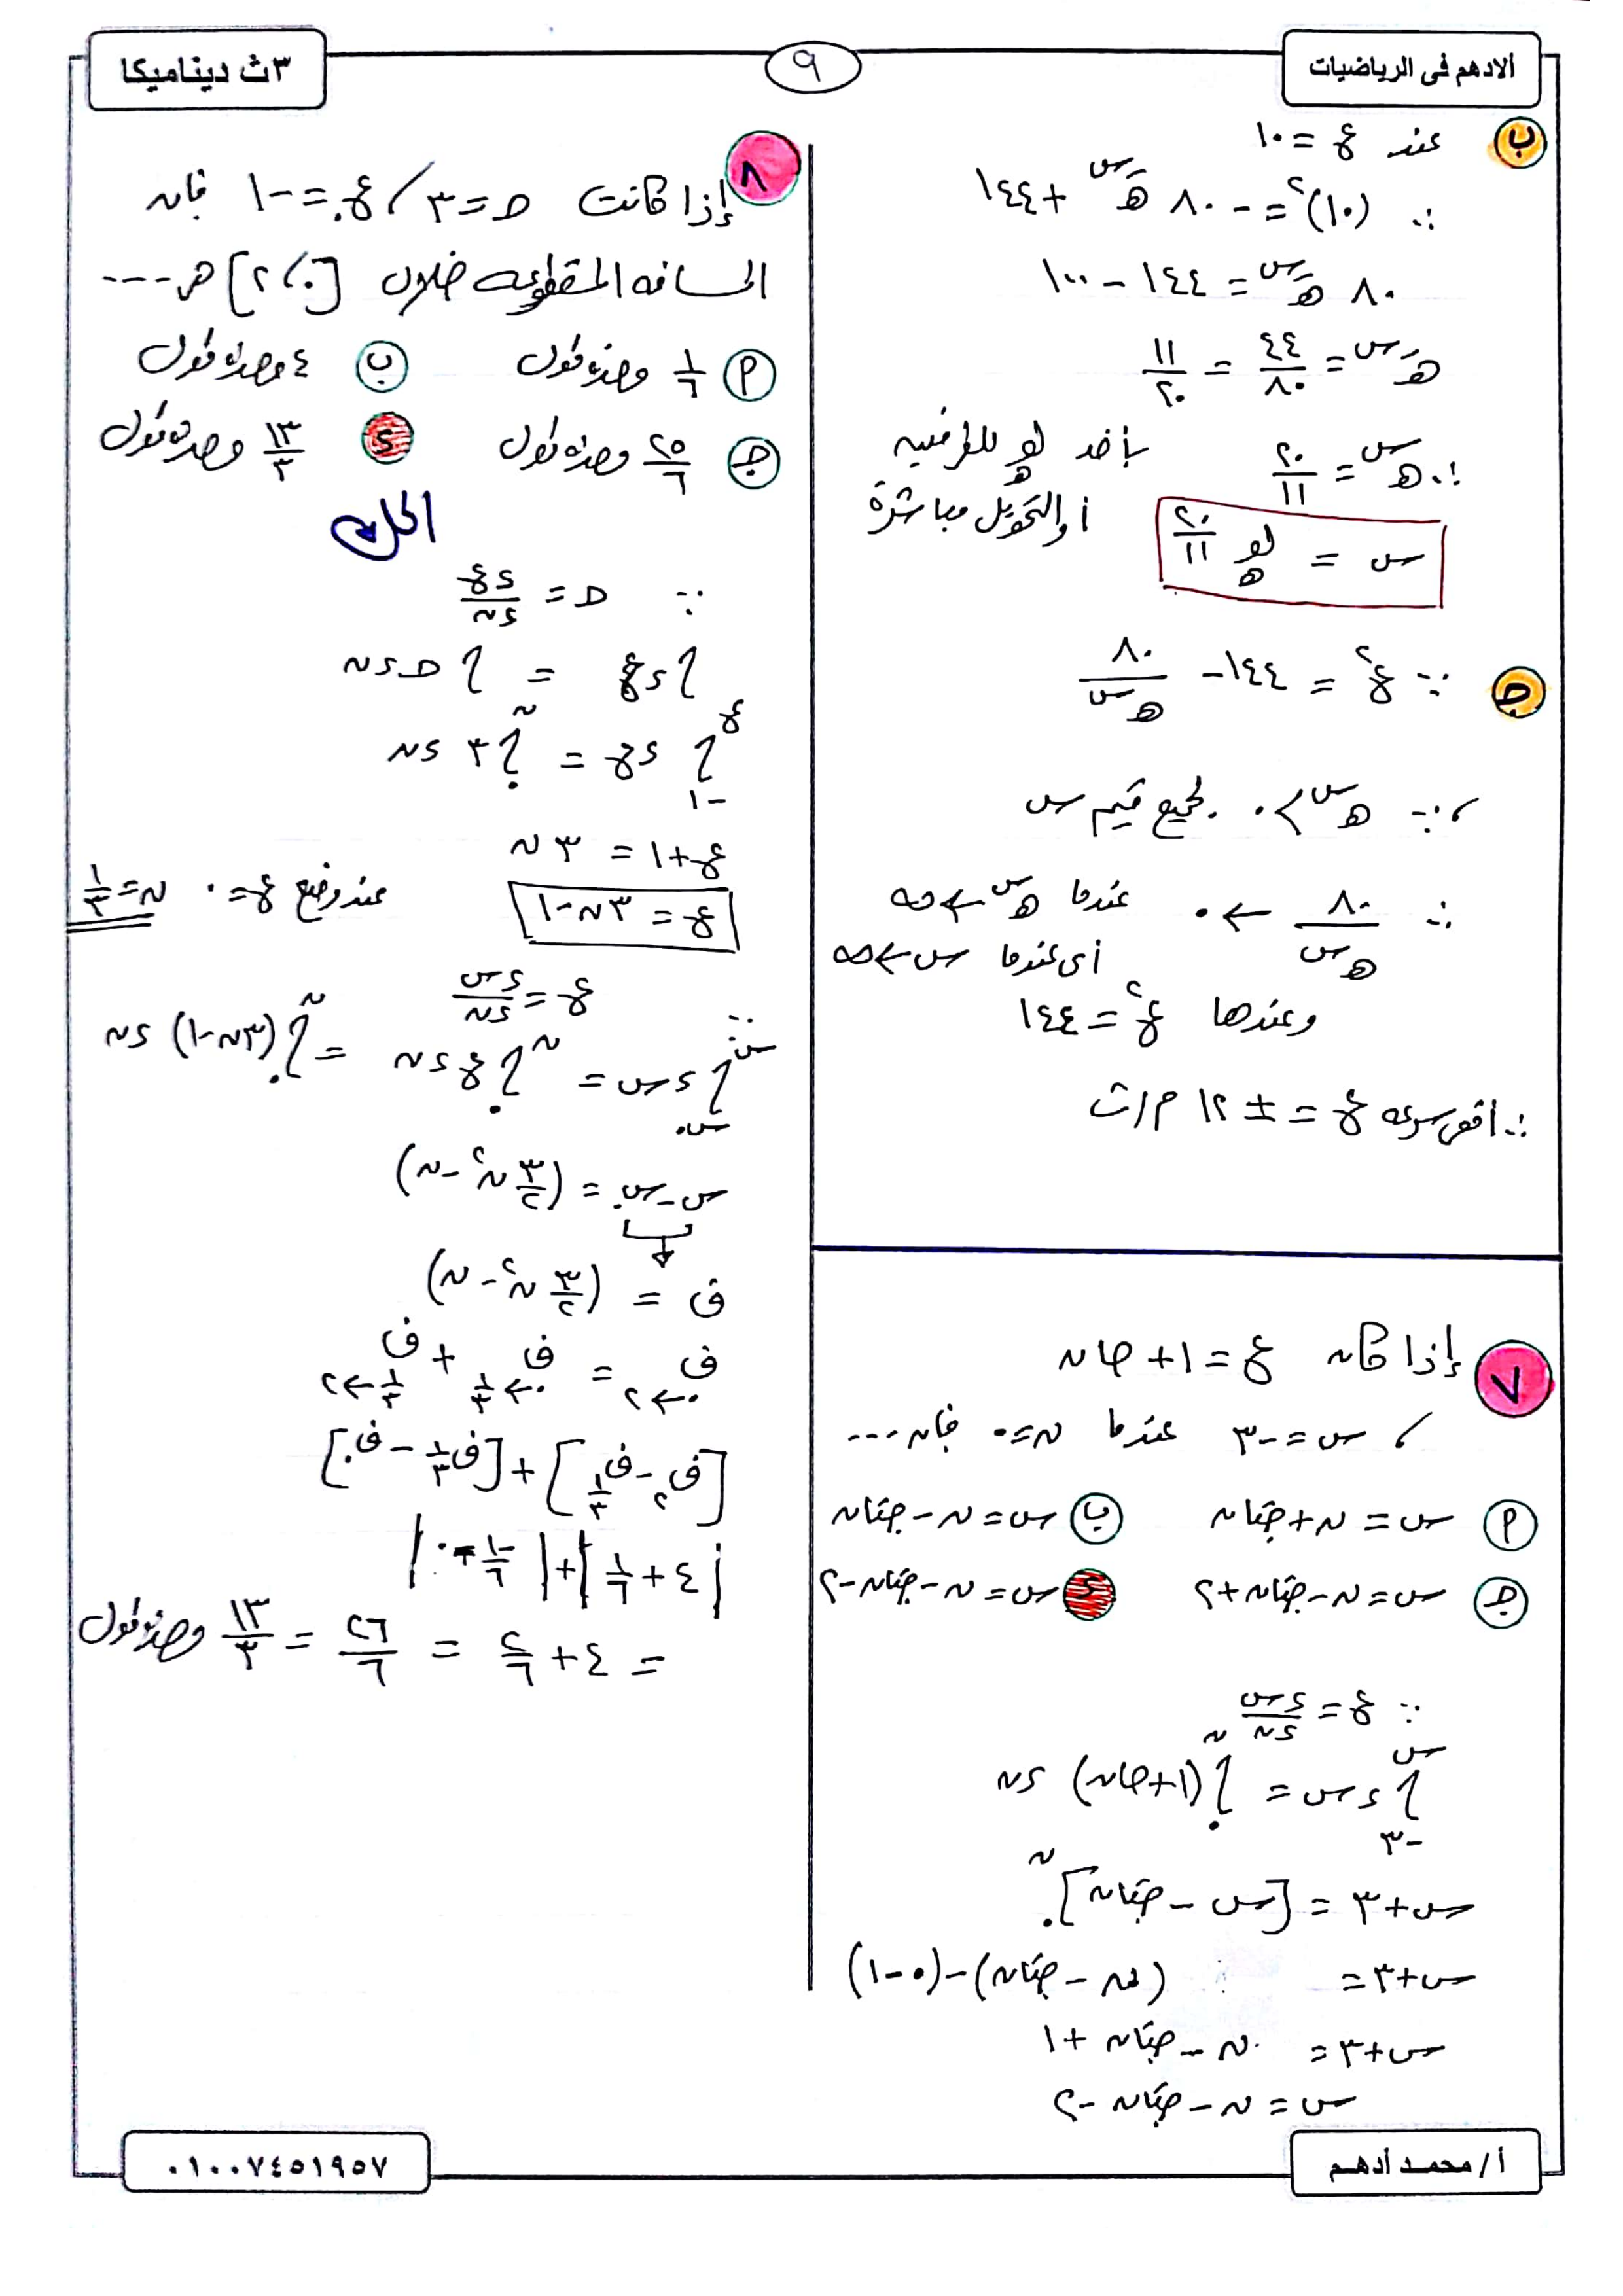 الادهم فى الرياضيات
٩
٣ث ديناميكا
ب عند ع = ١٠
∴ (١٠)² = -٨٠ هـ⁻ˢ + ١٤٤
٨٠ هـ⁻ˢ = ١٤٤ - ١٠٠
هـ⁻ˢ = ٤٤/٨٠ = ١١/٢٠
∴ هـˢ = ٢٠/١١ بأخذ لو هـ للطرفين
أو التحويل مباشرة
س = لو هـ ٢٠/١١
جـ ∵ ع² = ١٤٤ - ٨٠/هـˢ
، ∵ هـˢ > ٠ لجميع قيم س
∴ ٨٠/هـˢ ← ٠ عندما هـˢ ← ∞
أى عندما س ← ∞
وعندها ع² = ١٤٤
∴ أقصى سرعه ع = ± ١٢ م/ث
٧ إذا كان ع = ١ + جا ن
، س = -٣ عندما ن = ٠ فإن ...
أ س = ن + جتا ن
ب س = ن - جتا ن
جـ س = ن - جتا ن + ٢
د س = ن - جتا ن - ٢
∵ ع = ءس/ءن
∫₋₃ˢ ءس = ∫₀ⁿ (١ + جا ن) ءن
س + ٣ = [س - جتا ن]₀ⁿ
س + ٣ = (ن - جتا ن) - (٠ - ١)
س + ٣ = ن - جتا ن + ١
س = ن - جتا ن - ٢
٨ إذا كانت حـ = ٣ ، ع. = -١ فإن
المسافه المقطوعه خلال [٠، ٢] هى ----
أ ١/٦ وحدة طول
ب ٤ وحدة طول
جـ ٢٥/٦ وحدة طول
د ١٣/٣ وحدة طول
الحل
∵ حـ = ءع/ءن
∫ ءع = ∫ حـ ءن
∫₋₁ᵉ ءع = ∫₀ⁿ ٣ ءن
ع + ١ = ٣ن
ع = ٣ن - ١ عند وضع ع = ٠ ن = ١/٣
∵ ع = ءس/ءن
∫ ءس = ∫₀ⁿ ع ءن = ∫₀ⁿ (٣ن - ١) ءن
س - س. = (٣/٢ ن² - ن)
ف = (٣/٢ ن² - ن)
ف ٠←٢ = ف ٠←١/٣ + ف ١/٣←٢
[ف٢ - ف١/٣] + [ف١/٣ - ف٠]
|٤ + ١/٦| + |-١/٦ - ٠|
= ٤ + ٢/٦ = ٢٦/٦ = ١٣/٣ وحدة طول
أ / محمد أدهم
٠١٠٠٧٤٥١٩٥٧